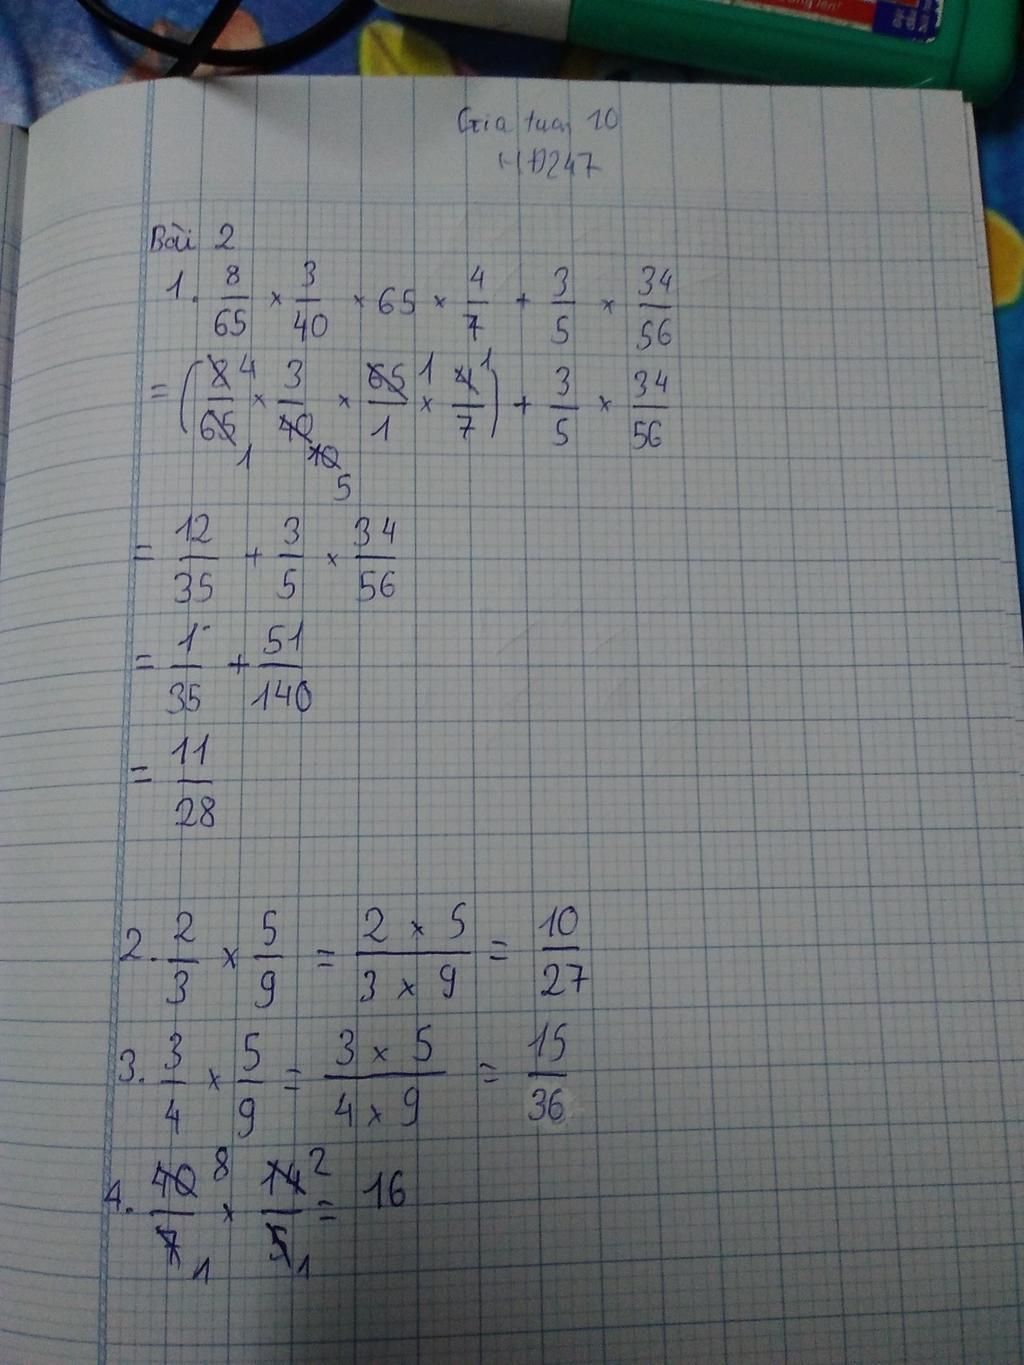 10
Bài 2
1. 8/65 × 3/40 × 65 × 4/7 + 3/5 × 34/56
= (8/65 4 1 × 3/40 10 5 × 65/1 1 × 4/7 1) + 3/5 × 34/56
= 12/35 + 3/5 × 34/56
= 1/35 + 51/140
= 11/28
2. 2/3 × 5/9 = 2 × 5/3 × 9 = 10/27
3. 3/4 × 5/9 = 3 × 5/4 × 9 = 15/36
4. 40/7 8 1 × 14/5 2 1 = 16